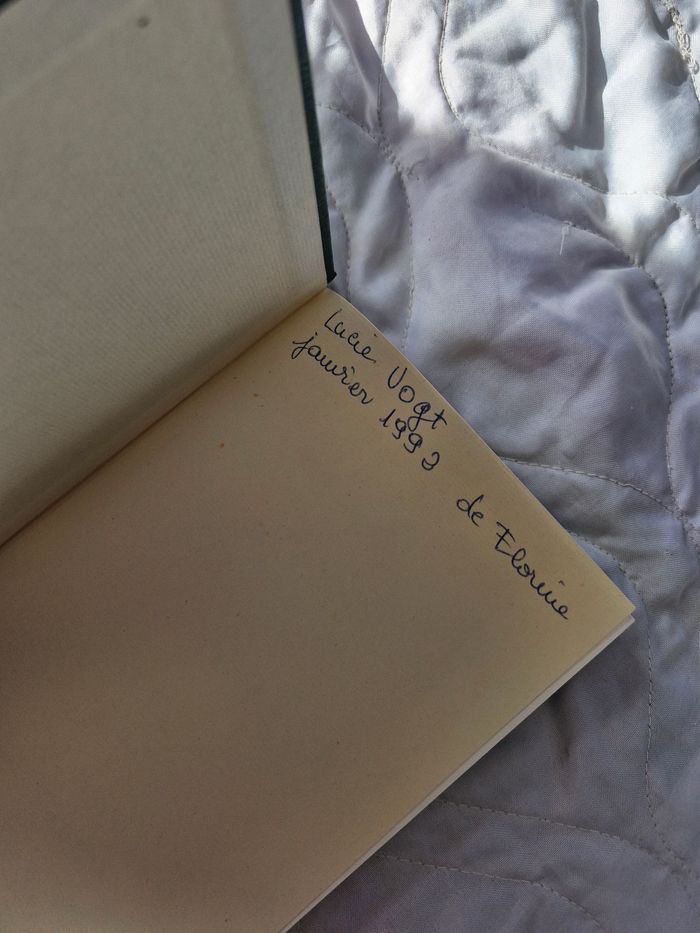 Lucie Vogt
janvier 1993 de Florine